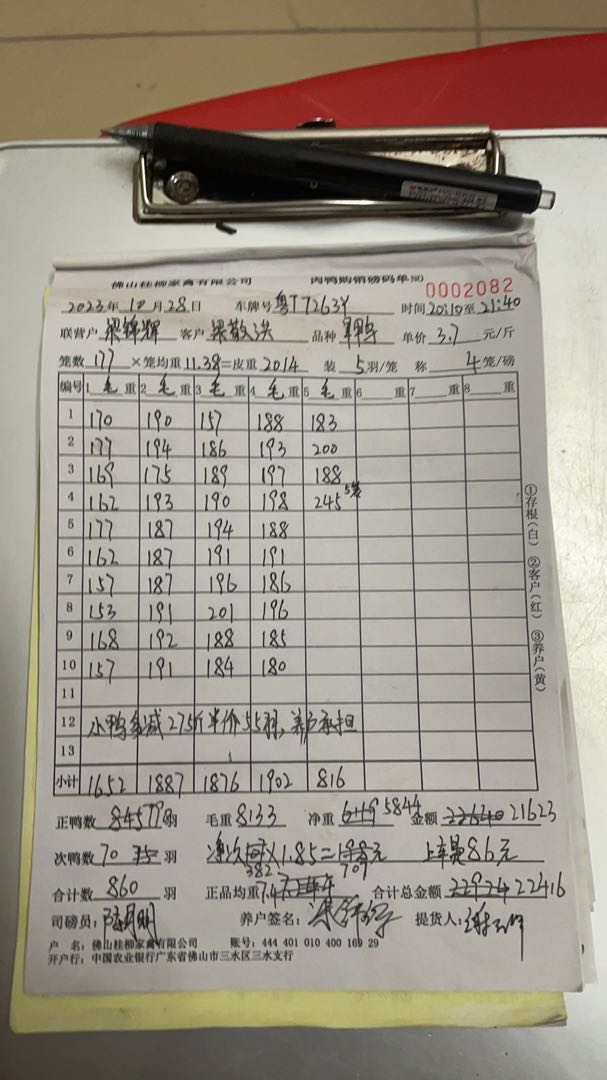 佛山桂柳家禽有限公司 肉鸭购销磅码单 NO 0002082
2023年10月28日 车牌号粤T7263Y 时间20:10至21:40
联营户梁锦辉 客户梁敬洪 品种 单价3.7元/斤
笼数177×笼均重11.38=皮重2014 装5羽/笼 称4笼/磅
编号 1毛重 2毛重 3毛重 4毛重 5毛重 6重 7重 8重
1 170 190 157 188 183
2 177 194 186 193 200
3 169 175 189 197 188
4 162 193 190 198 245 5笼
5 177 187 194 188
6 162 187 191 191
7 157 187 196 186
8 153 191 201 196
9 168 192 188 185
10 157 191 184 180
11
12 小鸭多减275斤半价55羽,养户承担
13
小计 1652 1887 1876 1902 816
正鸭数 790羽 毛重8133 净重5844 金额21623
次鸭数70羽 净次382×1.85=707元 上车员86元
合计数860羽 正品均重7.4 合计总金额22416
司磅员: 养户签名:梁锦辉 提货人:
户 名:佛山桂柳家禽有限公司 账号:444 401 010 400 169 29
开户行:中国农业银行广东省佛山市三水区三水支行
①存根(白) ②客户(红) ③养户(黄)